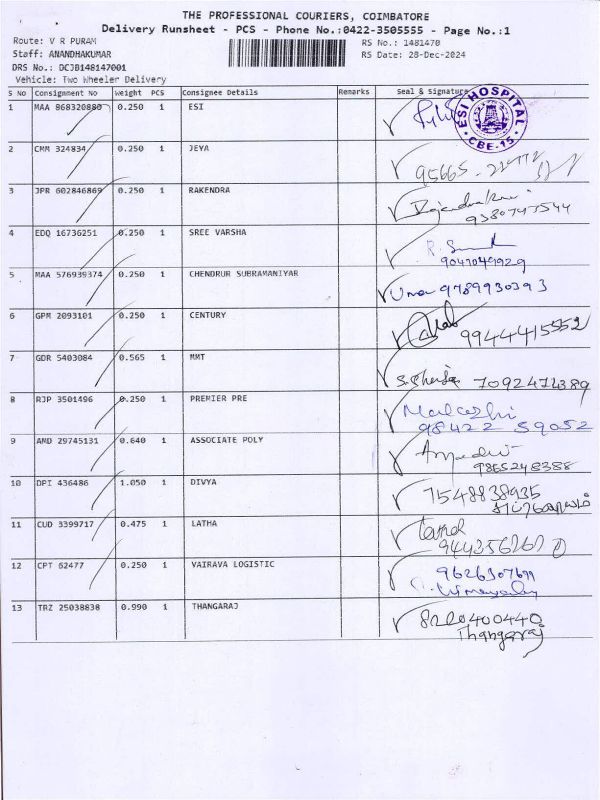 THE PROFESSIONAL COURIERS, COIMBATORE
Delivery Runsheet - PCS - Phone No.:0422-3505555 - Page No.:1
Route: V R PURAM RS No.: 1481470
Staff: ANANDHAKUMAR RS Date: 28-Dec-2024
DRS No.: DCJB148147001
Vehicle: Two Wheeler Delivery
S No Consignment No Weight PCS Consignee Details Remarks Seal & signature
1 MAA 868320880 0.250 1 ESI
ESI HOSPITAL CBE-15
2 CMM 324834 0.250 1 JEYA 95665
3 JPR 602846869 0.250 1 RAKENDRA
9380747544
4 EDQ 16736251 0.250 1 SREE VARSHA
9047049929
5 MAA 576939374 0.250 1 CHENDRUR SUBRAMANIYAR Uma 9789930393
6 GPM 2093101 0.250 1 CENTURY 9944415552
7 GDR 5403084 0.565 1 MMT 7092472389
8 RJP 3501496 0.250 1 PREMIER PRE
98422 59052
9 AMD 29745131 0.640 1 ASSOCIATE POLY
9865248388
10 DPI 436486 1.050 1 DIVYA 7548838935
11 CUD 3399717 0.475 1 LATHA
12 CPT 62477 0.250 1 VAIRAVA LOGISTIC
13 TRZ 25038838 0.990 1 THANGARAJ 8220400440
Thangaraj